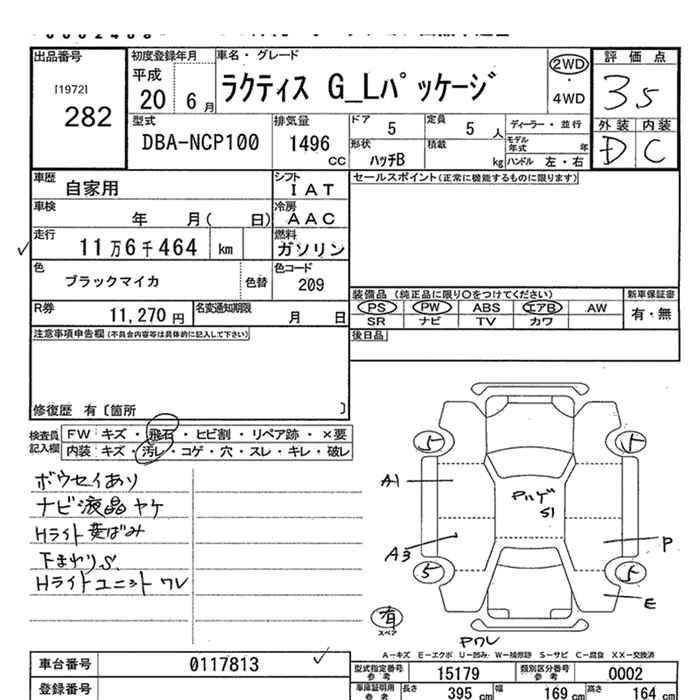 出品番号 初度登録年月 車名・グレード 評価点
[1972] 平成 ラクティス G_Lパッケージ 2WD・4WD 35
282 20 6月
型式 排気量 ドア 5 定員 5人 ディーラー・並行 外装 内装
DBA-NCP100 1496 CC 形状 ハッチB 積載 kg モデル年式 年 ハンドル 左・右 D C
車歴 自家用 シフト IAT セールスポイント(正常に機能するものに限ります)
車検 年 月( 日) 冷房 AAC
走行 11万6千464 km 燃料 ガソリン
色 ブラックマイカ 色替 色コード 209
装備品(純正品に限り〇をつけてください) 新車保証書
PS PW ABS エアB AW 有・無
SR ナビ TV カワ
R券 11,270円 名変通知期限 月 日
注意事項申告欄(不具合内容等は具体的に記入して下さい) 後日品
修復歴 有〔箇所 〕
検査員記入欄 FW キズ・飛石・ヒビ割・リペア跡・×要
内装 キズ・汚レ・コゲ・穴・スレ・キレ・破レ
ボウセイあり
ナビ液晶ヤケ
Hライト黄ばみ
下まわりS
Hライトユニット ワレ
5 5
A1
S1
A3 P
5 5
E
有
スペア
Pワレ
A-キズ E-エクボ U-凹み W-補修跡 S-サビ C-腐食 XX-交換済
車台番号 0117813 型式指定番号 参考 15179 類別区分番号 参考 0002
登録番号 車庫証明用 参考 長さ 395 cm 幅 169 cm 高さ 164 cm